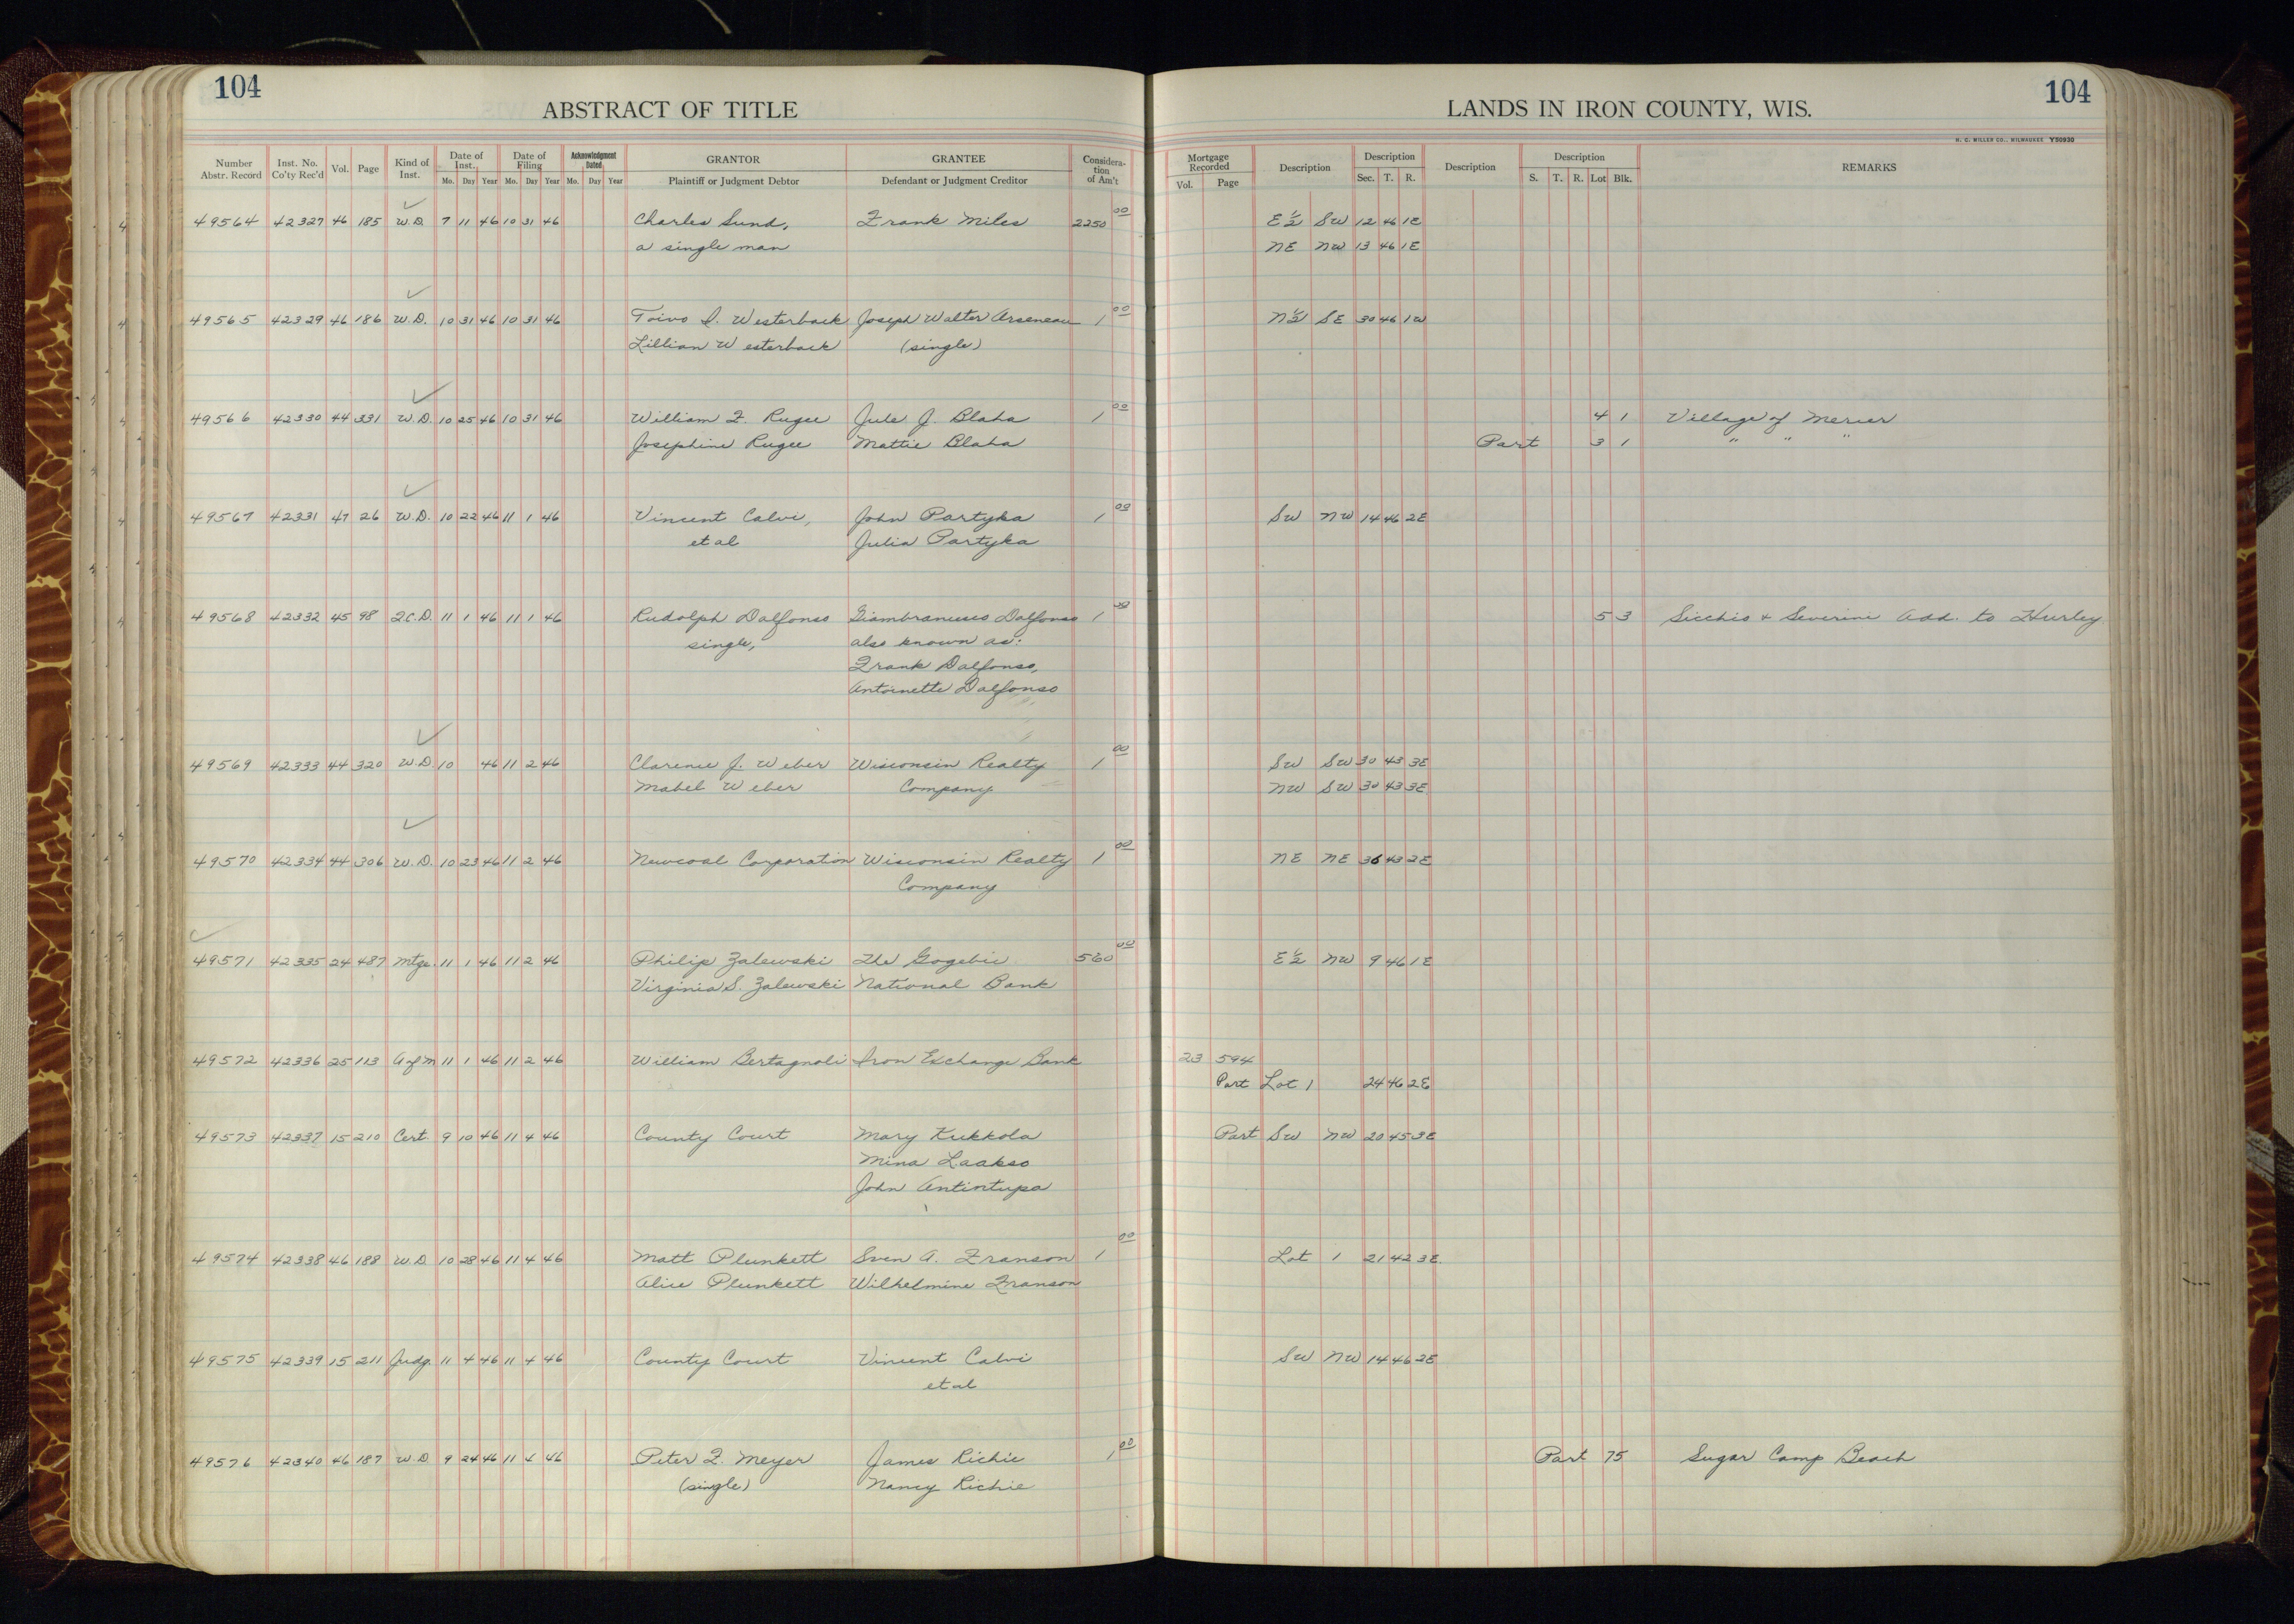 104
104
ABSTRACT OF TITLE
LANDS IN IRON COUNTY, WIS.
H. C. MILLER CO., MILWAUKEE Y50930
Number Abstr. Record Inst. No. Co'ty Rec'd Vol. Page Kind of Inst. Date of Inst. Date of Filing Acknowledgment Dated GRANTOR GRANTEE Considera-tion of Am't Mortgage Recorded Description Description Description Description REMARKS
Mo. Day Year Mo. Day Year Mo. Day Year Plaintiff or Judgment Debtor Defendant or Judgment Creditor Vol. Page Sec. T. R. S. T. R. Lot Blk.
49564 42327 46 185 W.D. 7 11 46 10 31 46 Charles Sund, Frank Miles 2250 00 E½ SW 12 46 1E
a single man NE NW 13 46 1E
49565 42329 46 186 W.D. 10 31 46 10 31 46 Toivo I. Westerback Joseph Walter Arseneau 1 00 N½ SE 30 46 1W
Lillian Westerback (single)
49566 42330 44 331 W.D. 10 25 46 10 31 46 William F. Rugee Jule J. Blaha 1 00 4 1 Village of Mercer
Josephine Rugee Mattie Blaha Part 3 1 " " "
49567 42331 47 26 W.D. 10 22 46 11 1 46 Vincent Calvi, John Partyka 1 00 SW NW 14 46 2E
et al Julia Partyka
49568 42332 45 98 Q.C.D. 11 1 46 11 1 46 Rudolph Dalfonso Giambranusco Dalfonso 1 00 5 3 Sicchio & Severini Add. to Hurley.
single, also known as:
Frank Dalfonso,
Antoinette Dalfonso
49569 42333 44 320 W.D. 10 46 11 2 46 Clarence J. Weber Wisconsin Realty 1 00 SW SW 30 43 3E
Mabel Weber Company NW SW 30 43 3E
49570 42334 44 306 W.D. 10 23 46 11 2 46 Newcoal Corporation Wisconsin Realty 1 00 NE NE 36 43 2E
Company
49571 42335 24 487 Mtge. 11 1 46 11 2 46 Philip Zalewski The Gogebic 560 00 E½ NW 9 46 1E
Virginia S. Zalewski National Bank
49572 42336 25 113 A of M 11 1 46 11 2 46 William Bertagnoli Iron Exchange Bank 23 594
Part Lot 1 24 46 2E
49573 42337 15 210 Cert. 9 10 46 11 4 46 County Court Mary Kukkola Part SW NW 20 45 3E
Mina Laakso
John Antintupa
49574 42338 46 188 W.D. 10 28 46 11 4 46 Matt Plunkett Sven A. Franson 1 00 Lot 1 21 42 3E.
Alice Plunkett Wilhelmine Franson
49575 42339 15 211 Judg. 11 4 46 11 4 46 County Court Vincent Calvi SW NW 14 46 2E
et al
49576 42340 46 187 W.D. 9 24 46 11 4 46 Peter F. Meyer James Richie 1 00 Part 75 Sugar Camp Beach
(single) Nancy Richie